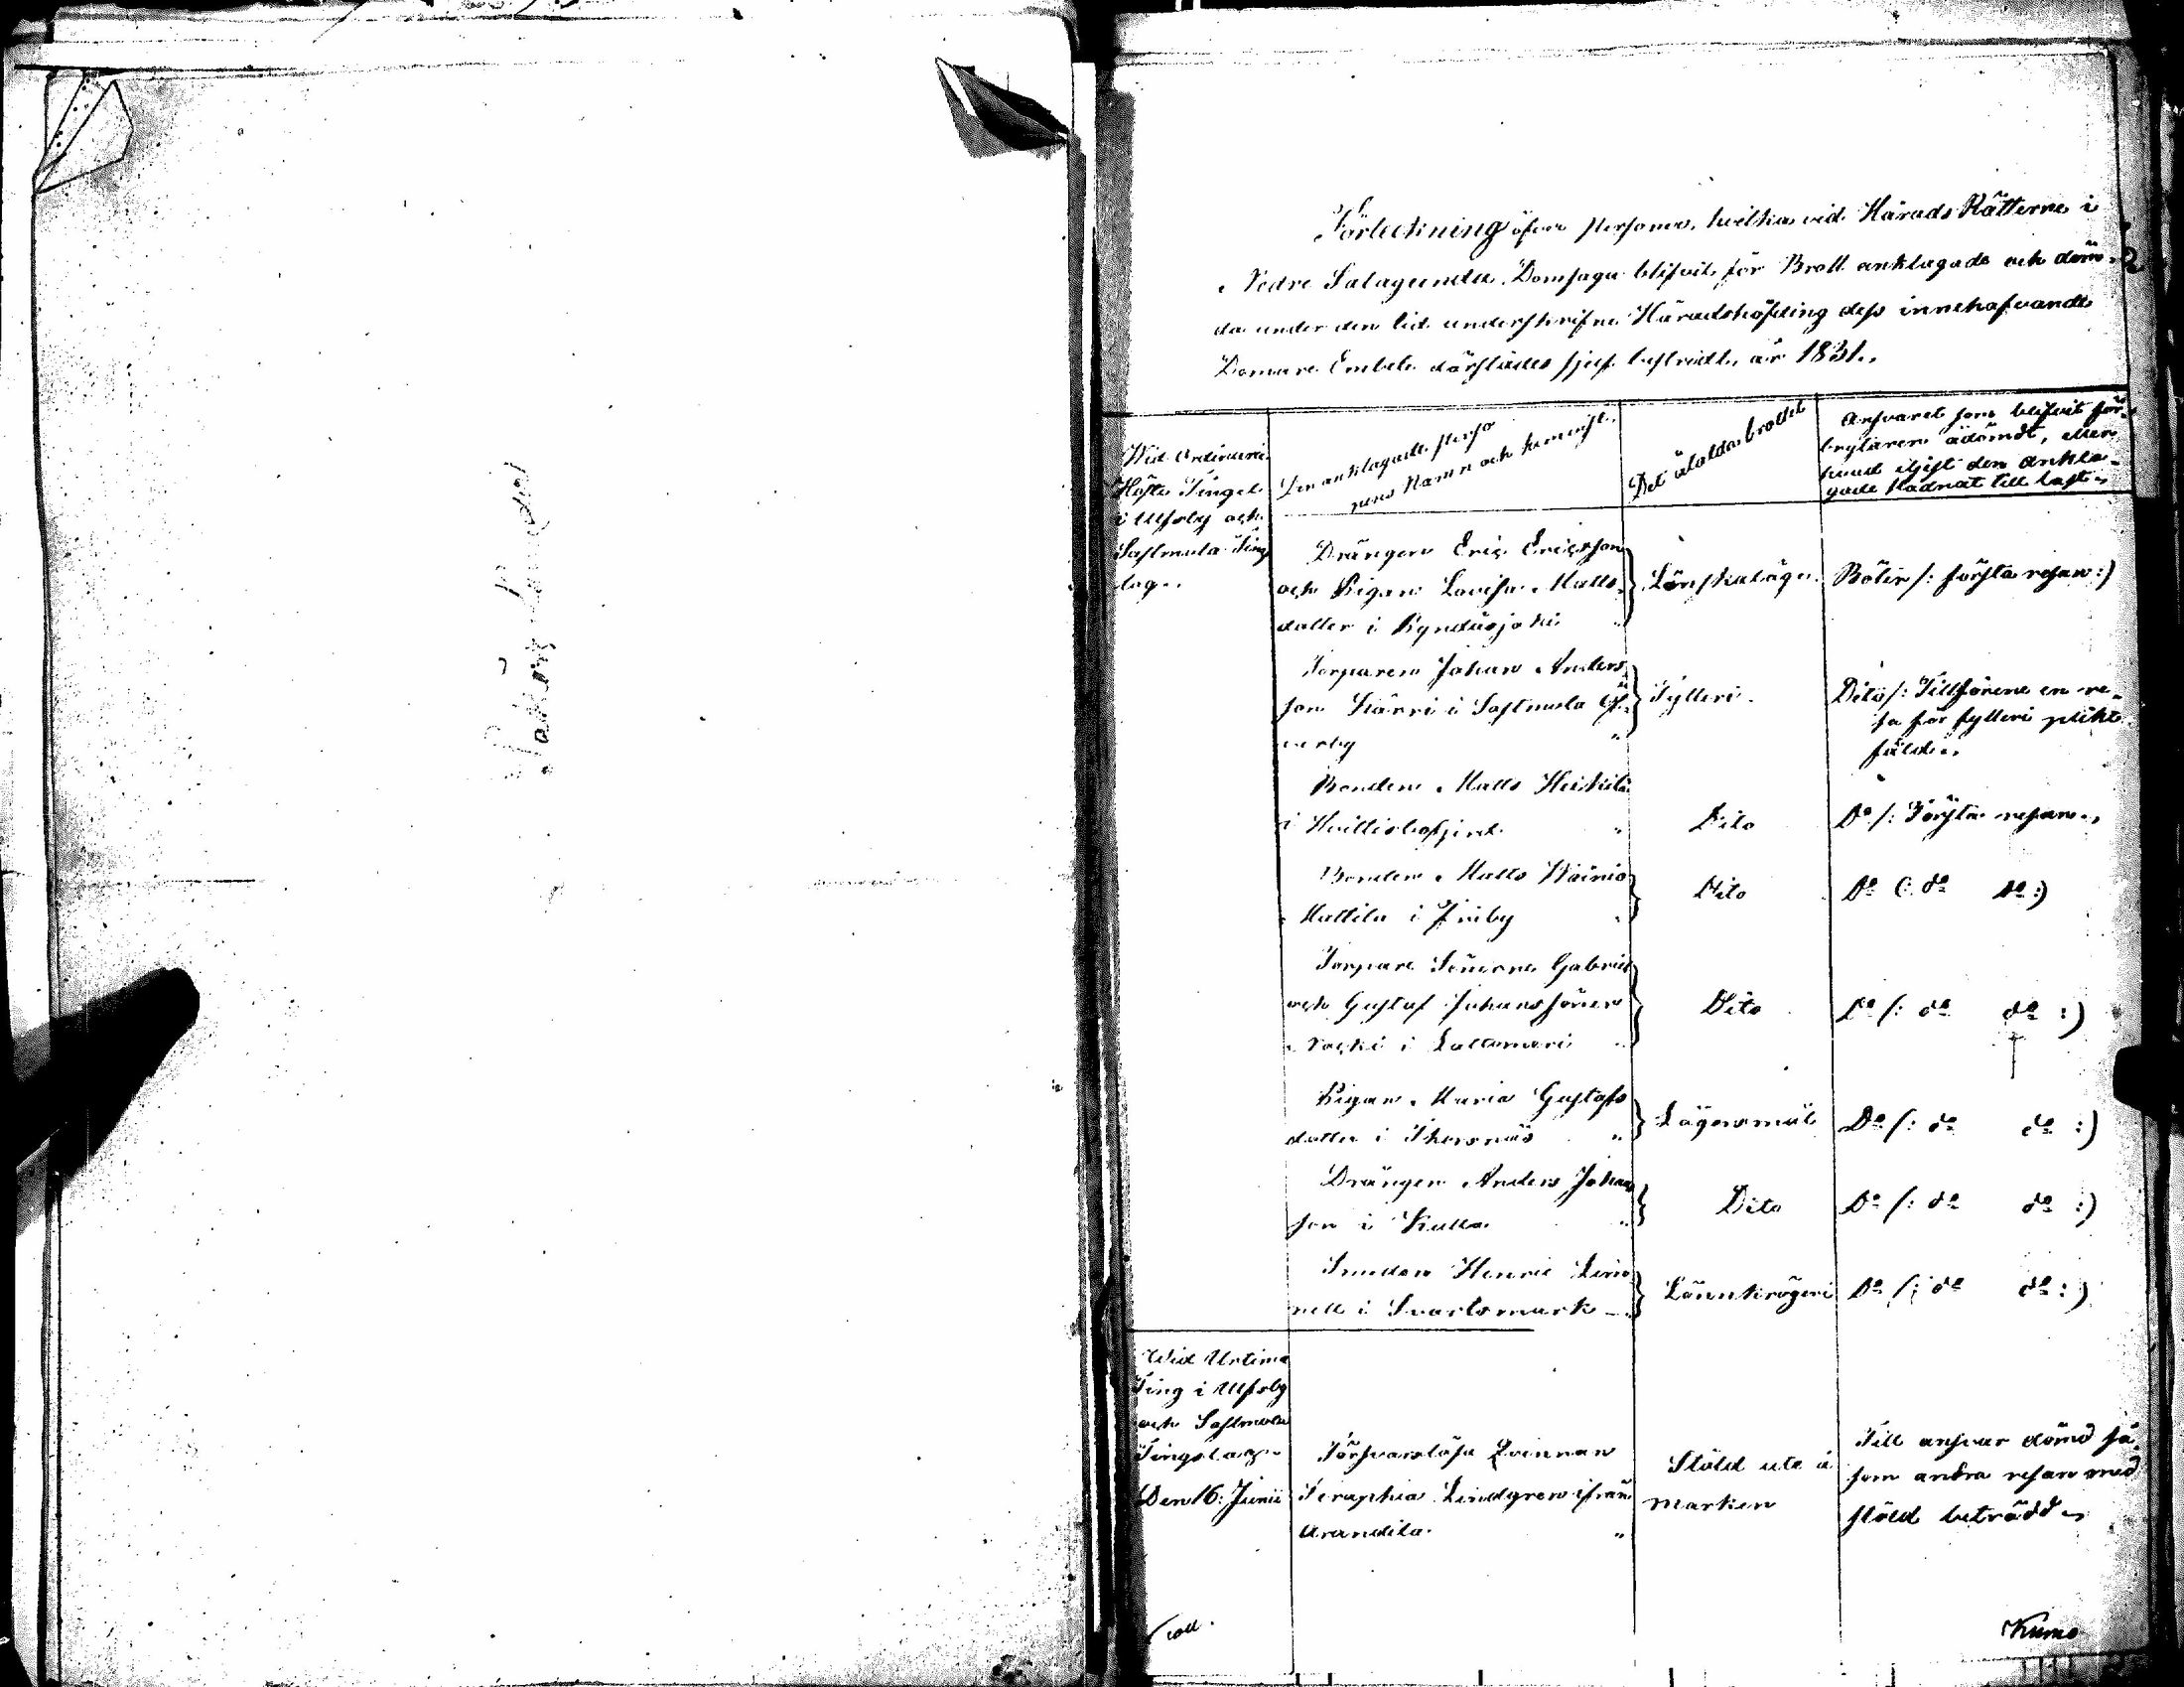 Förteckning öfver personer, hvilka vid Härads Rätterne i
Nedre Satagunda Domsaga blifvit för Brott anklagade och döm-
da under den tid underskrifne Häradshöfding dess innehafvande
Domare Embete därstädes sjelf bestridt, år 1831.
Wid Ordinarie
Höste Tinget
i Ulfsby och
Sastmola Ting
lag.
Den anklagade perso
nens Namn och hemvist.
Det åtalda brottet
Ansvaret som blifvit för-
brytaren ådömdt, eller
huad utgift den ankla-
gade
till last
Drängen Eric Ericsson
och Pigan Lovisa Matts-
dotter i
Lönskaläge
Böter /: första resan :)
Torparen Johan Anders
son Kärri i Sastmola Öf-
verby
Fylleri
Dito /: Tillförene en re-
sa för fylleri plikt
fälld.
Bonden Matts Heikilä
i Hvittisbofjerd
Dito
Do /: Första resan
Bonden Matts
Mattila i Finby
Dito
Do /: do do :)
Torpare Sönerne Gabriel
och Gustaf Johanssöner
i Lattomeri
Dito
Do /: do do :)
Pigan Maria Gustafs
dotter i Thorsnäs
Lägersmål
Do /: do do :)
Drängen Anders Johan
son i Kulla
Dito
Do /: do do :)
Smeden Henric Lin
nell i Svartsmark
Lönnkrögeri
Do /: do do :)
Wid Urtima
Ting i Ulfsby
och Sastmola
Tingslag
Den 16. Junii
Försvarslösa Qvinnan
Seraphia Lindgren ifrån
Arandila
Stöld ute å
marken
Till ansvar dömd så
som andra resan med
stöld beträdd
Kumo